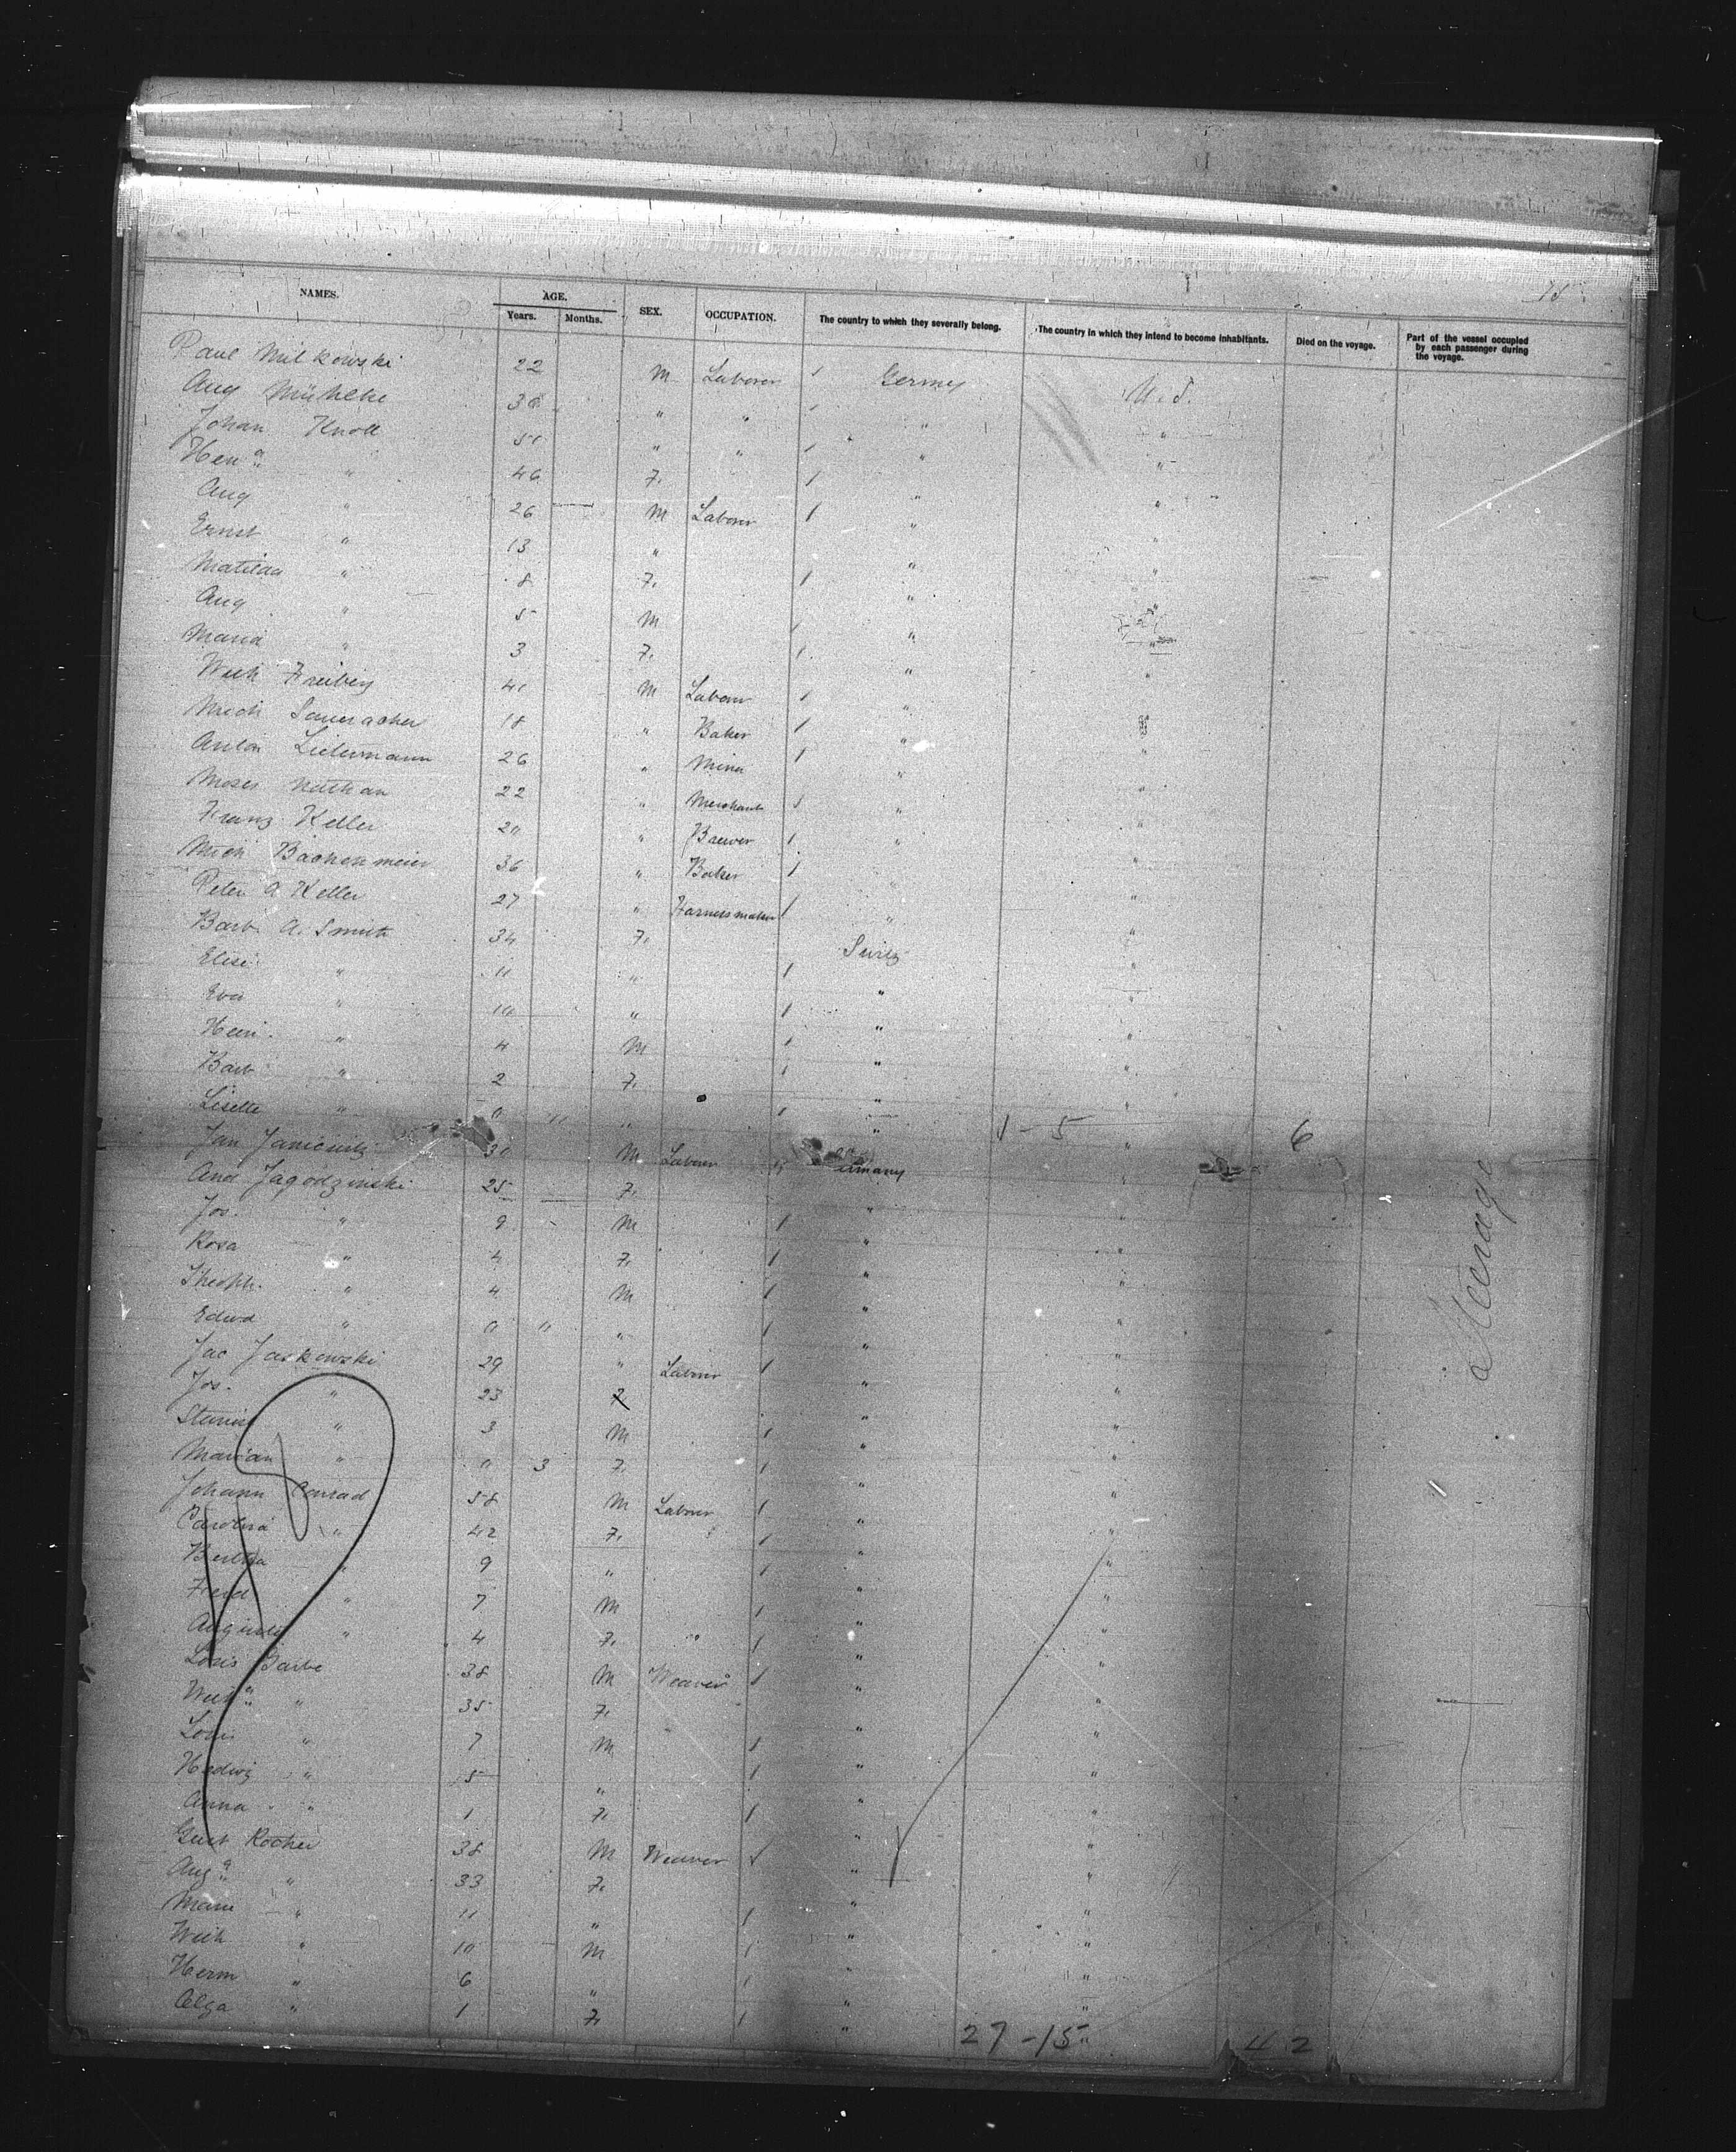 15
NAMES. AGE. Years. Months. SEX. OCCUPATION. The country to which they severally belong. The country in which they intend to become inhabitants. Died on the voyage. Part of the vessel occupied by each passenger during the voyage.
Paul Milkowski 22 M Laborer / Germy U.S.
Aug Mühlke 30 " " / " "
Johan Knoll 51 " " / " "
Hen a " 46 F. / " "
Aug " 26 M Laborer / " "
Ernst " 13 " " "
Matilda " 8 F. / " "
Aug " 5 M / " "
Maria " 3 F. / " "
Freiberg 41 M Laborer / " "
Mich 18 " Baker / " "
Anton 26 " Miner / " "
Moses Nathan 22 " Merchant / " "
Franz Keller 20 " Brewer / " "
Mich Bachenmeier 36 " Baker / " "
Peter A Keller 27 " Harnessmaker / " "
Barb. A. Smith 34 F. Switz "
Elise " 11 " / " "
Eva " 10 " / " "
Heni. " 4 M / " "
Barb " 2 F. / " "
Lisette " 0 11 " / " "
1 - 5 6
Jan 30 M Laborer Germany "
And Jagodzinski 25 F. " "
Jos. " 9 M / " "
Rosa " 4 F. / " "
Theoph. " 4 M / " "
Edwd " 0 11 " / " "
Jac Jaskowski 29 " Laborer / " "
Jos. " 23 F " "
" 3 M / " "
Marian " 0 3 F. / " "
Johann Conrad 58 M Laborer / " "
Carolina " 42 F. / " "
Bertha " 9 " / " "
Ferd " 7 M / " "
Auguste " 4 F. / " "
Louis Garbe 38 M Weaver / " "
" 35 F. " "
Louis " 7 M / " "
Hedwig " 5 " / " "
Anna " 1 F. / " "
Gust Rocher 38 M Weaver / " "
Aug a " 33 F. " "
Marie " 11 " / " "
" 10 M / " "
Herm " 6 " / " "
Olga " 1 F. / " "
27 - 15 42
Steerage